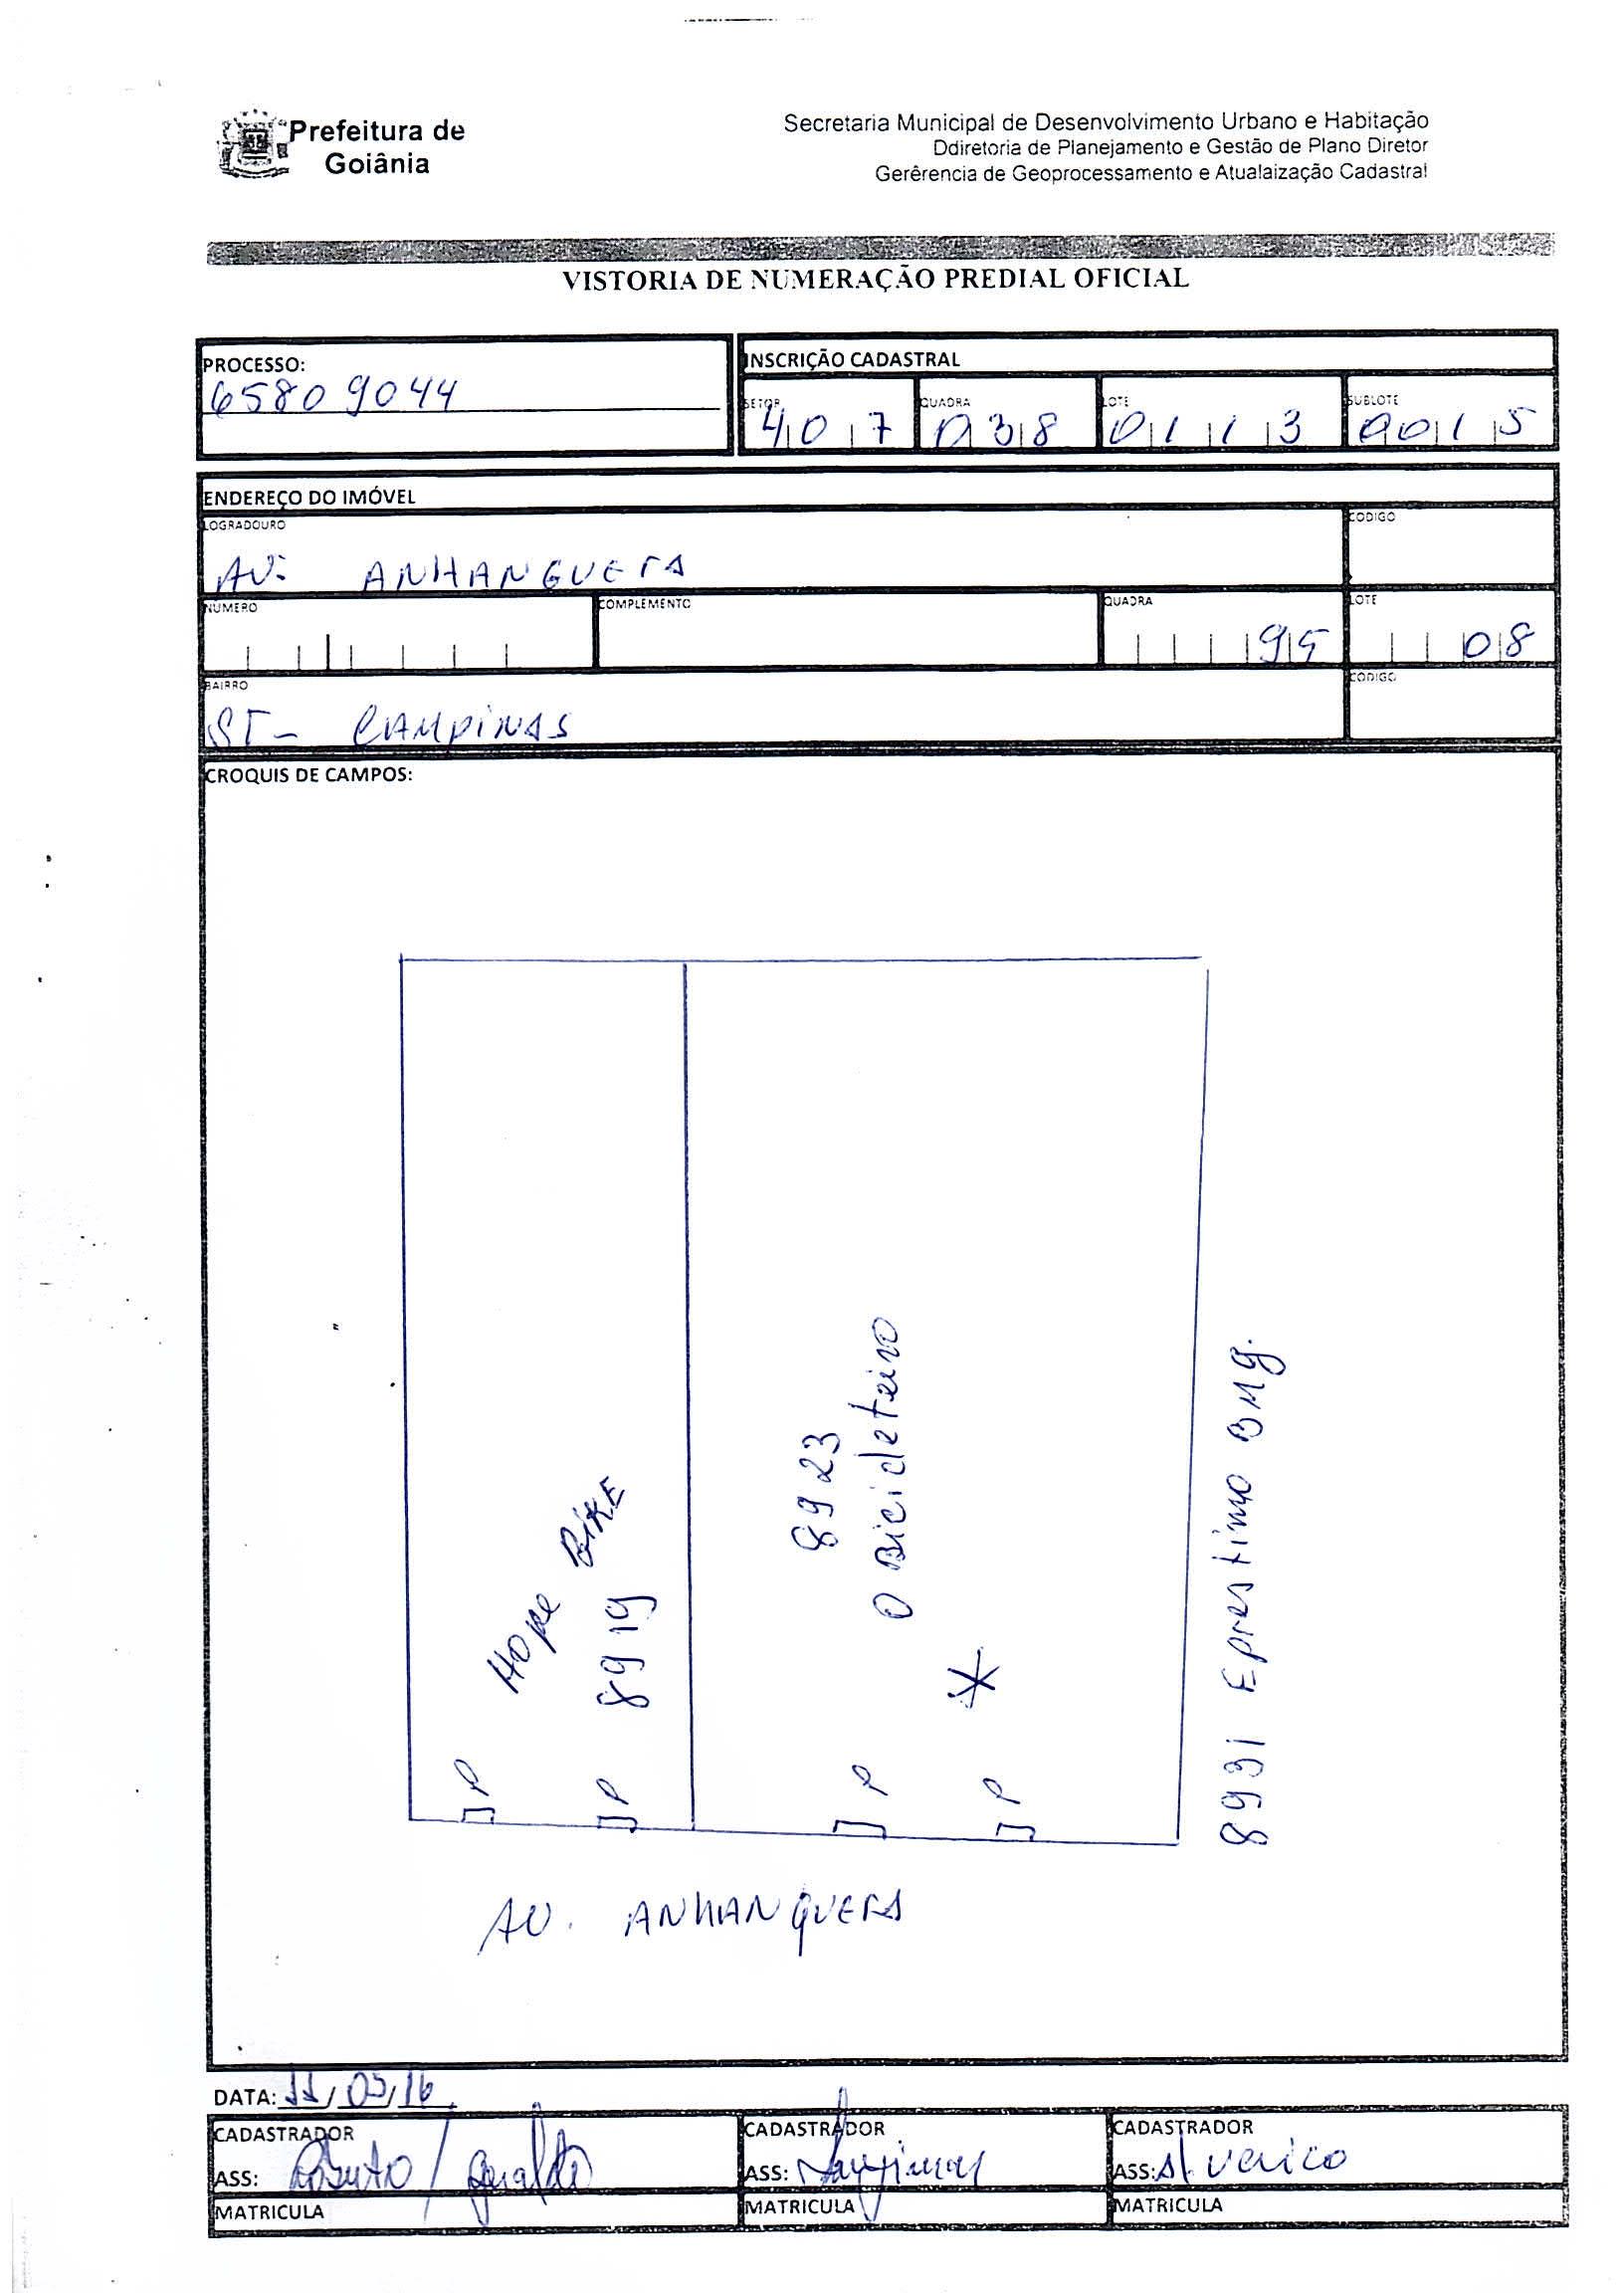 Prefeitura de
Goiânia
Secretaria Municipal de Desenvolvimento Urbano e Habitação
Ddiretoria de Planejamento e Gestão de Plano Diretor
Gerêrencia de Geoprocessamento e Atualaização Cadastral
VISTORIA DE NUMERAÇÃO PREDIAL OFICIAL
PROCESSO:
65809044
INSCRIÇÃO CADASTRAL
SETOR QUADRA LOTE SUBLOTE
407 038 0113 0015
ENDEREÇO DO IMÓVEL
LOGRADOURO CODIGO
AV: ANHANGUERA
NUMERO COMPLEMENTO QUADRA LOTE
95 08
BAIRRO CODIGO
ST- CAMPINAS
CROQUIS DE CAMPOS:
Hope BIKE
8919
8923
O Bicicleteiro
8931 Eprestimo BMG.
P P P P
AV. ANHANGUERA
DATA: 11/05/16
CADASTRADOR CADASTRADOR CADASTRADOR
ASS: ASS: ASS:
MATRICULA MATRICULA MATRICULA